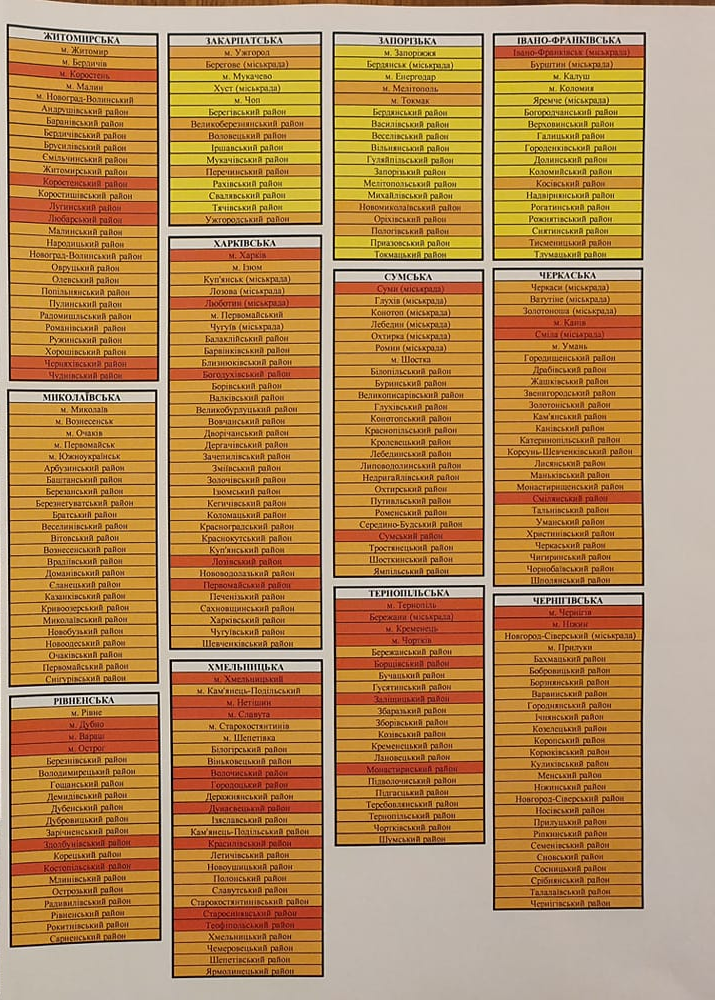 ЖИТОМИРСЬКА
м. Житомир
м. Бердичів
м. Коростень
м. Малин
м. Новоград-Волинський
Андрушівський район
Баранівський район
Бердичівський район
Брусилівський район
Ємільчинський район
Житомирський район
Коростенський район
Коростишівський район
Лугинський район
Любарський район
Малинський район
Народицький район
Новоград-Волинський район
Овруцький район
Олевський район
Попільнянський район
Пулинський район
Радомишльський район
Романівський район
Ружинський район
Хорошівський район
Черняхівський район
Чуднівський район
МИКОЛАЇВСЬКА
м. Миколаїв
м. Вознесенськ
м. Очаків
м. Первомайськ
м. Южноукраїнськ
Арбузинський район
Баштанський район
Березанський район
Березнегуватський район
Братський район
Веселинівський район
Вітовський район
Вознесенський район
Врадіївський район
Доманівський район
Єланецький район
Казанківський район
Кривоозерський район
Миколаївський район
Новобузький район
Новоодеський район
Очаківський район
Первомайський район
Снігурівський район
РІВНЕНСЬКА
м. Рівне
м. Дубно
м. Вараш
м. Острог
Березнівський район
Володимирецький район
Гощанський район
Демидівський район
Дубенський район
Дубровицький район
Зарічненський район
Здолбунівський район
Корецький район
Костопільський район
Млинівський район
Острозький район
Радивилівський район
Рівненський район
Рокитнівський район
Сарненський район
ЗАКАРПАТСЬКА
м. Ужгород
Берегове (міськрада)
м. Мукачево
Хуст (міськрада)
м. Чоп
Берегівський район
Великоберезнянський район
Воловецький район
Іршавський район
Мукачівський район
Перечинський район
Рахівський район
Свалявський район
Тячівський район
Ужгородський район
ХАРКІВСЬКА
м. Харків
м. Ізюм
Куп'янськ (міськрада)
Лозова (міськрада)
Люботин (міськрада)
м. Первомайський
Чугуїв (міськрада)
Балаклійський район
Барвінківський район
Близнюківський район
Богодухівський район
Борівський район
Валківський район
Великобурлуцький район
Вовчанський район
Дворічанський район
Дергачівський район
Зачепилівський район
Зміївський район
Золочівський район
Ізюмський район
Кегичівський район
Коломацький район
Красноградський район
Краснокутський район
Куп'янський район
Лозівський район
Нововодолазький район
Первомайський район
Печенізький район
Сахновщинський район
Харківський район
Чугуївський район
Шевченківський район
ХМЕЛЬНИЦЬКА
м. Хмельницький
м. Кам'янець-Подільський
м. Нетішин
м. Славута
м. Старокостянтинів
м. Шепетівка
Білогірський район
Віньковецький район
Волочиський район
Городоцький район
Деражнянський район
Дунаєвецький район
Ізяславський район
Кам'янець-Подільський район
Красилівський район
Летичівський район
Новоушицький район
Полонський район
Славутський район
Старокостянтинівський район
Старосинявський район
Теофіпольський район
Хмельницький район
Чемеровецький район
Шепетівський район
Ярмолинецький район
ЗАПОРІЗЬКА
м. Запоріжжя
Бердянськ (міськрада)
м. Енергодар
м. Мелітополь
м. Токмак
Бердянський район
Василівський район
Веселівський район
Вільнянський район
Гуляйпільський район
Запорізький район
Мелітопольський район
Михайлівський район
Новомиколаївський район
Оріхівський район
Пологівський район
Приазовський район
Токмацький район
СУМСЬКА
Суми (міськрада)
Глухів (міськрада)
Конотоп (міськрада)
Лебедин (міськрада)
Охтирка (міськрада)
Ромни (міськрада)
м. Шостка
Білопільський район
Буринський район
Великописарівський район
Глухівський район
Конотопський район
Краснопільський район
Кролевецький район
Лебединський район
Липоводолинський район
Недригайлівський район
Охтирський район
Путивльський район
Роменський район
Середино-Будський район
Сумський район
Тростянецький район
Шосткинський район
Ямпільський район
ТЕРНОПІЛЬСЬКА
м. Тернопіль
Бережани (міськрада)
м. Кременець
м. Чортків
Бережанський район
Борщівський район
Бучацький район
Гусятинський район
Заліщицький район
Збаразький район
Зборівський район
Козівський район
Кременецький район
Лановецький район
Монастириський район
Підволочиський район
Підгаєцький район
Теребовлянський район
Тернопільський район
Чортківський район
Шумський район
ІВАНО-ФРАНКІВСЬКА
Івано-Франківськ (міськрада)
Бурштин (міськрада)
м. Калуш
м. Коломия
Яремче (міськрада)
Богородчанський район
Верховинський район
Галицький район
Городенківський район
Долинський район
Коломийський район
Косівський район
Надвірнянський район
Рогатинський район
Рожнятівський район
Снятинський район
Тисменицький район
Тлумацький район
ЧЕРКАСЬКА
Черкаси (міськрада)
Ватутіне (міськрада)
Золотоноша (міськрада)
м. Канів
Сміла (міськрада)
м. Умань
Городищенський район
Драбівський район
Жашківський район
Звенигородський район
Золотоніський район
Кам'янський район
Канівський район
Катеринопільський район
Корсунь-Шевченківський район
Лисянський район
Маньківський район
Монастирищенський район
Смілянський район
Тальнівський район
Уманський район
Христинівський район
Черкаський район
Чигиринський район
Чорнобаївський район
Шполянський район
ЧЕРНІГІВСЬКА
м. Чернігів
м. Ніжин
Новгород-Сіверський (міськрада)
м. Прилуки
Бахмацький район
Бобровицький район
Борзнянський район
Варвинський район
Городнянський район
Ічнянський район
Козелецький район
Коропський район
Корюківський район
Куликівський район
Менський район
Ніжинський район
Новгород-Сіверський район
Носівський район
Прилуцький район
Ріпкинський район
Семенівський район
Сновський район
Сосницький район
Срібнянський район
Талалаївський район
Чернігівський район